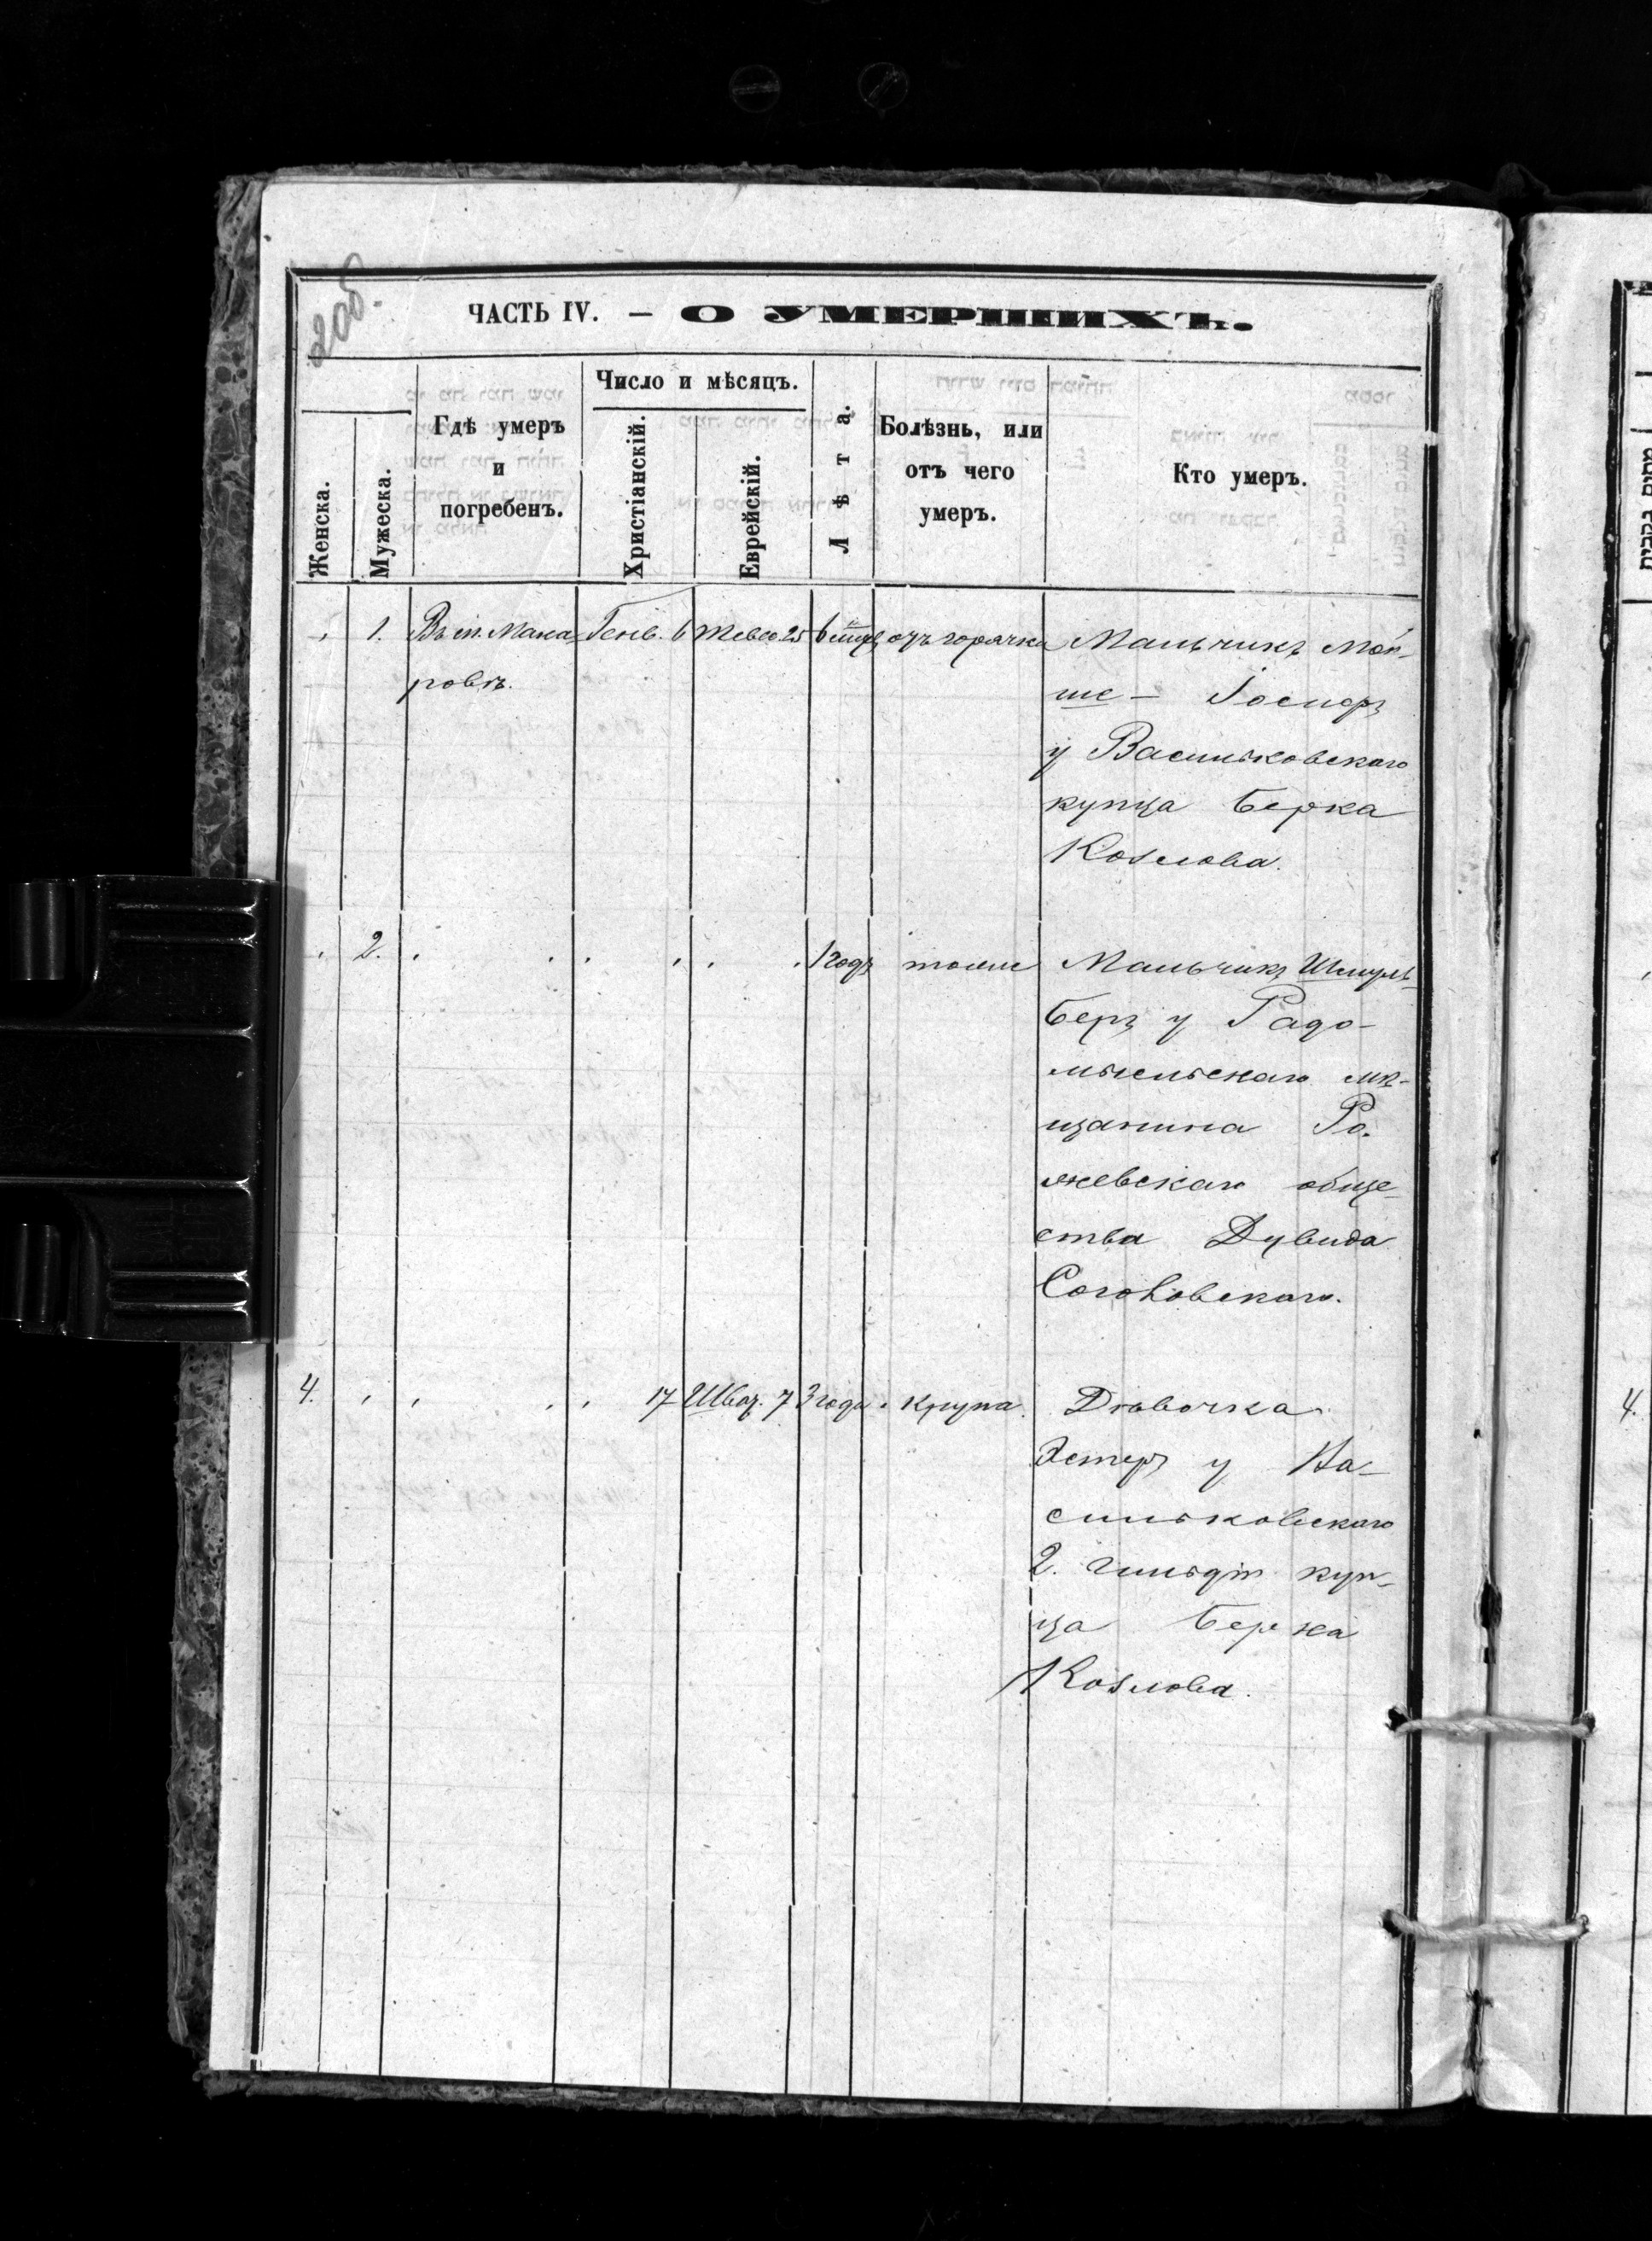 200б.
ЧАСТЬ IV. — О УМЕРШИХЪ.
Женска.
Мужеска.
Гдѣ умеръ
и
погребенъ.
Число и мѣсяцъ.
Христіанскій.
Еврейскій.
Лѣта.
Болѣзнь, или
отъ чего
умеръ.
Кто умеръ.
1. Въ м. Мака- Генв. 6 Тевео 25 6 отъ горячки Мальчикъ Мов-
ровѣ. ше — Іосифъ
у Васильковскаго
купца Берка
Козлова.
2. 1 годъ тоже Мальчикъ Шмуль
Беръ у Радо-
мысльскаго мѣ-
щанина Ро-
жевскаго обще-
ства Дувида
Соголовскаго.
4. 17 Шват. 7 3 года крупа. Дѣвочка
Эстеръ у Ва-
сильковскаго
2. гильдіи куп-
ца Берка
Козлова.
4.